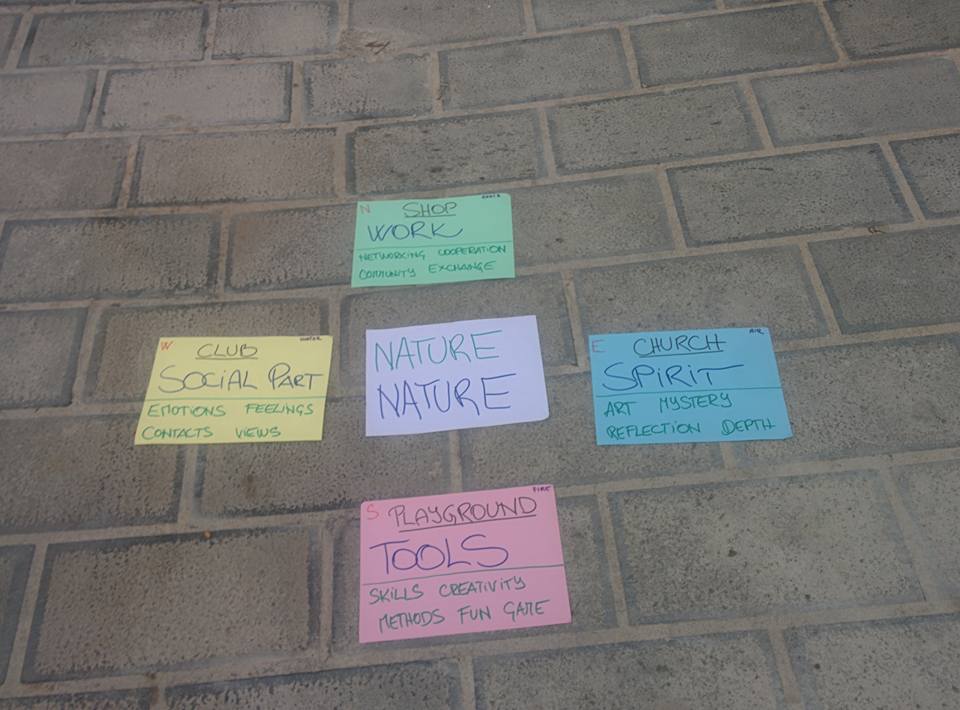 N SHOP EARTH
WORK
NETWORKING COOPERATION
COMMUNITY EXCHANGE
W CLUB WATER
SOCIAL PART
EMOTIONS FEELINGS
CONTACTS VIEWS
NATURE
NATURE
E CHURCH AIR
SPIRIT
ART MYSTERY
REFLECTION DEPTH
S PLAYGROUND FIRE
TOOLS
SKILLS CREATIVITY
METHODS FUN GAME